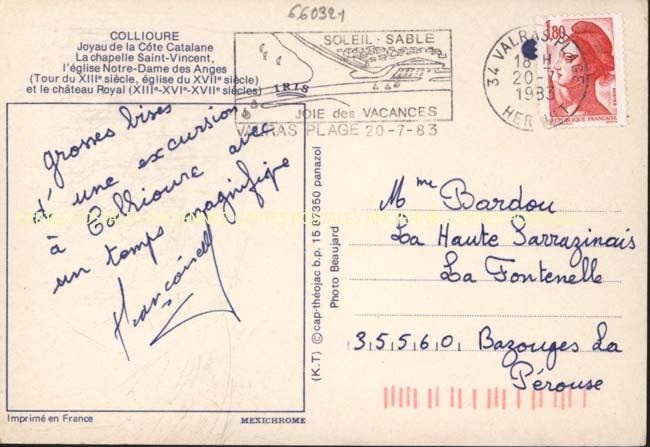 660321
COLLIOURE
Joyau de la Côte Catalane
La chapelle Saint-Vincent,
l'église Notre-Dame des Anges
(Tour du XIIIe siècle, église du XVIIe siècle)
et le château Royal (XIIIe-XVIe-XVIIe siècles)
SOLEIL - SABLE
IRIS
JOIE des VACANCES
VALRAS PLAGE 20-7-83
34 VALRAS PLAGE
18 H
20-7
1983
HERAULT
1,80
POSTES
REPUBLIQUE FRANCAISE
grosses bises
d'une excursion
à Collioure avec
un temps magnifique
(K.T) © cap-théojac b.p. 15 87350 panazol
Photo Beaujard
Mme Bardou
La Haute Sarrazinais
La Fontenelle
35560 Bazouges La
Pérouse
Imprimé en France
MEXICHROME